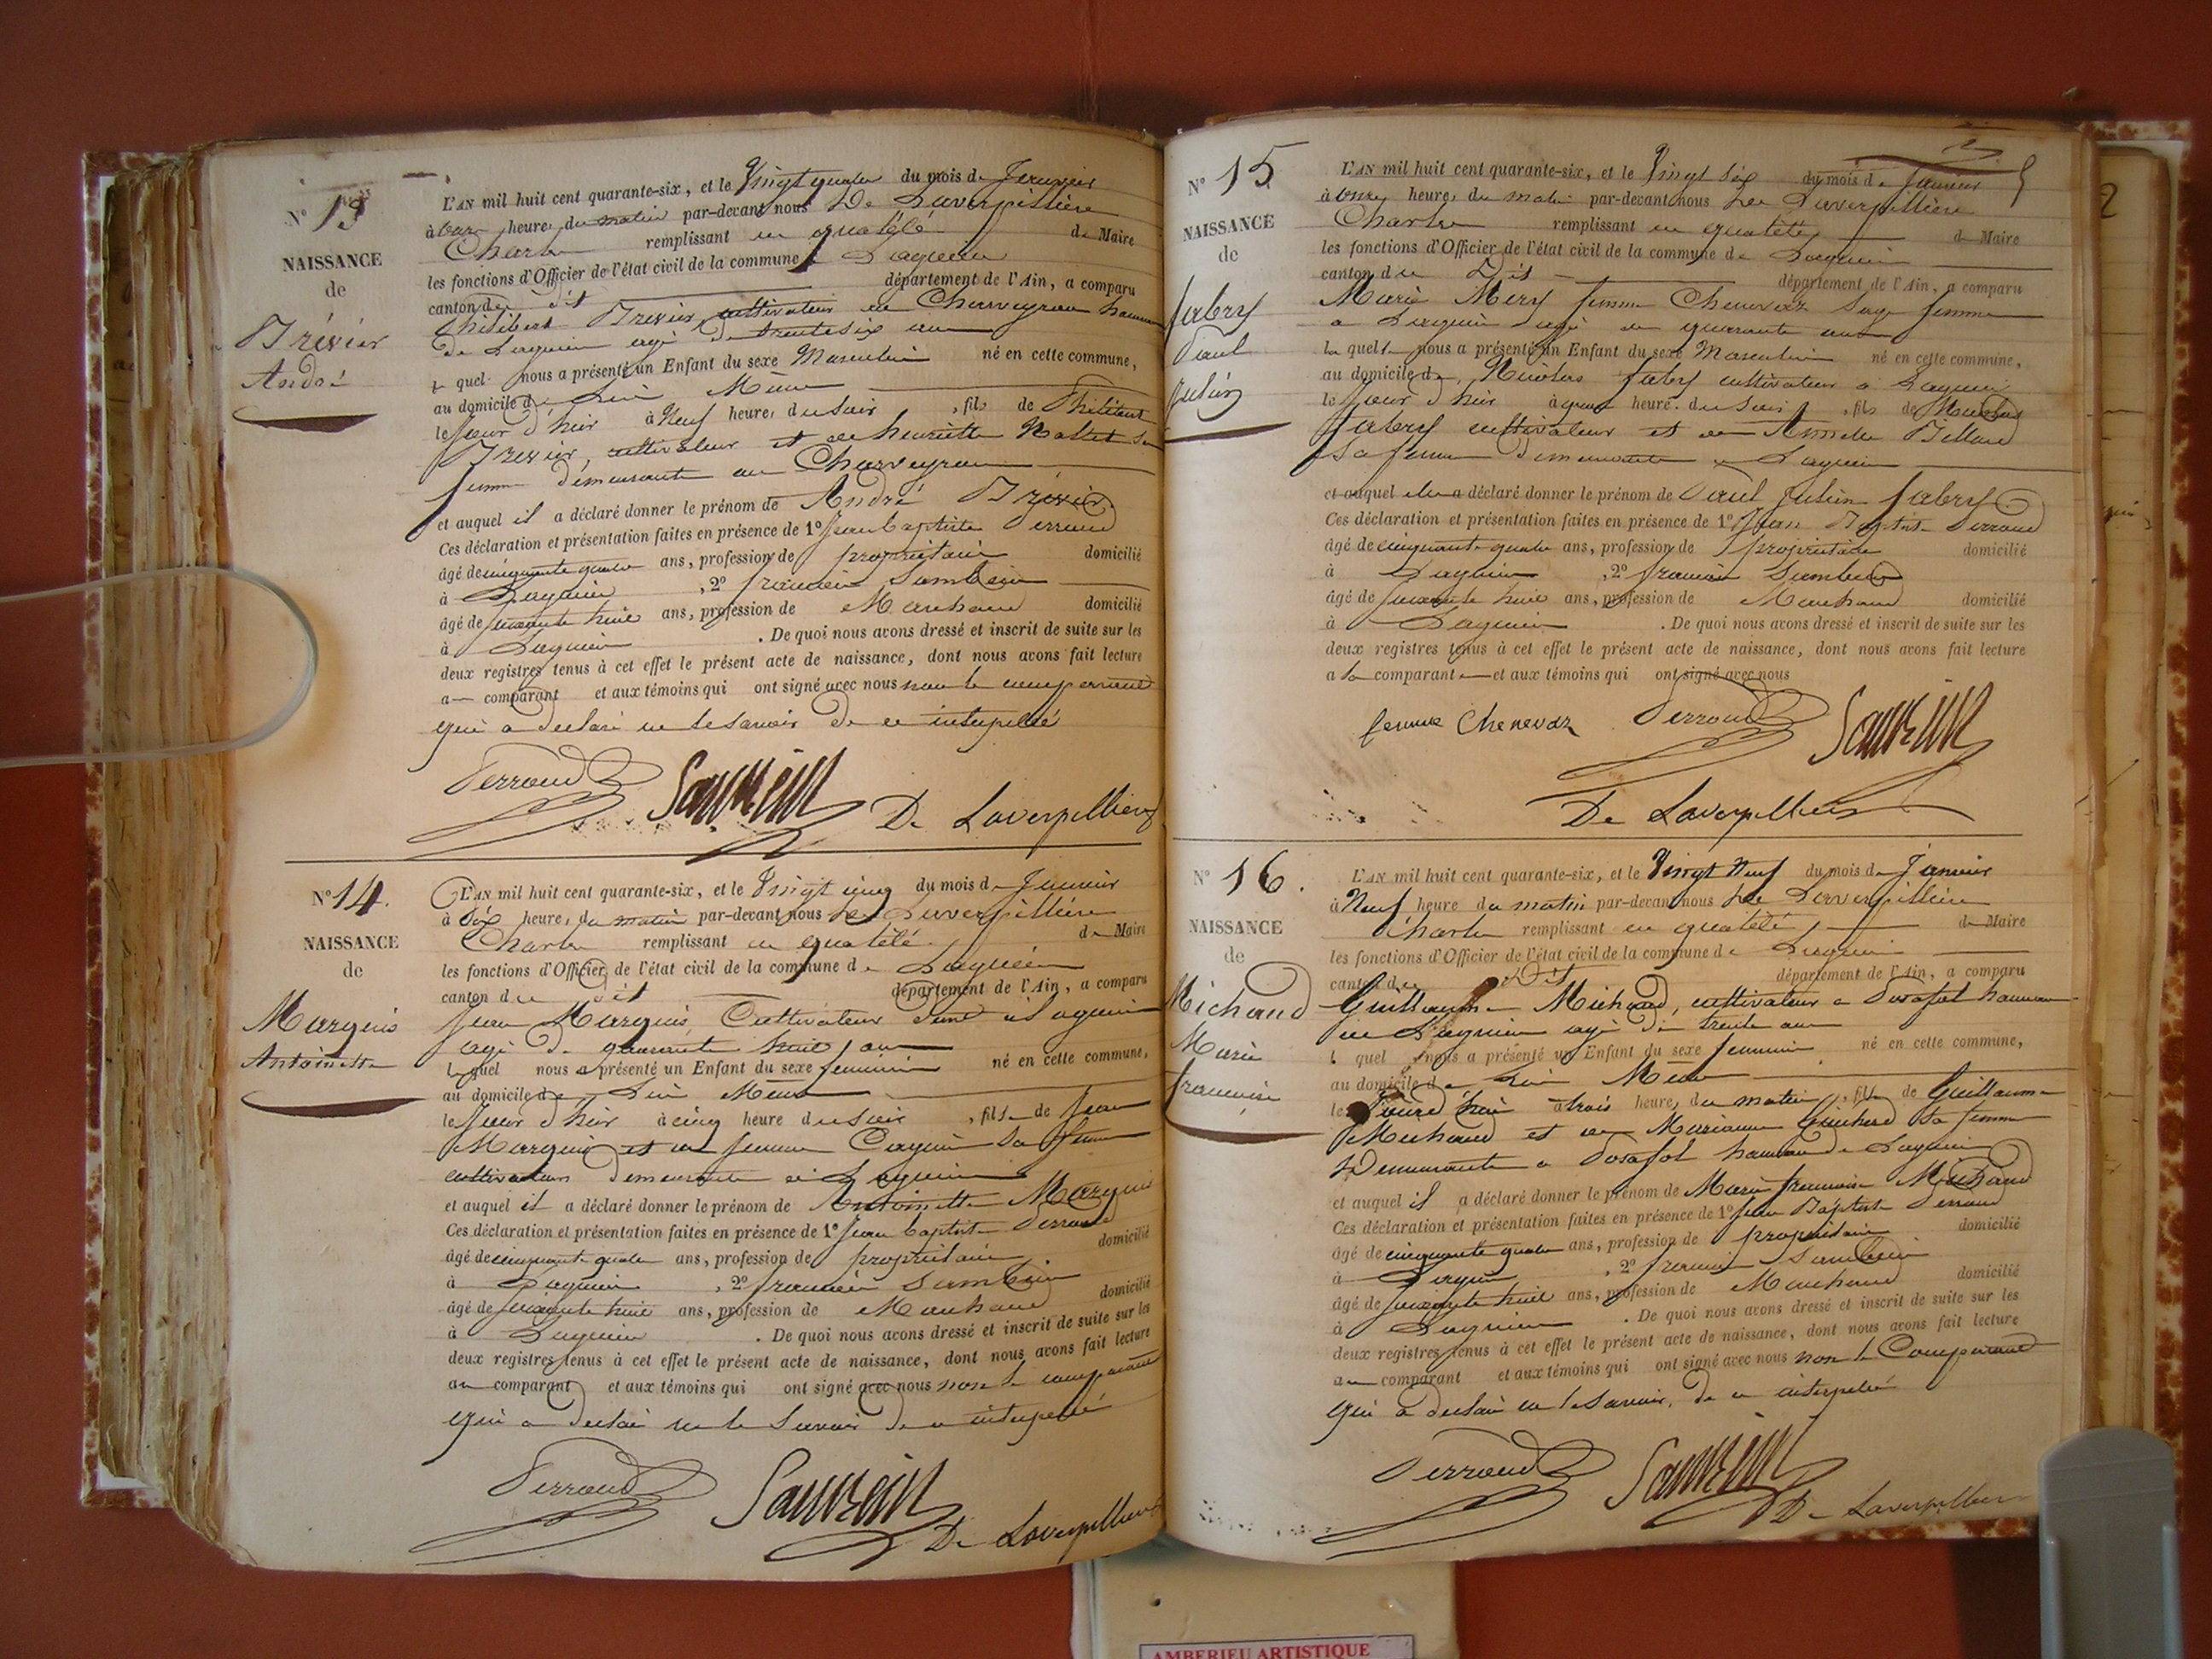 N° 13
NAISSANCE
de
Trévier
André
L'AN mil huit cent quarante-six, et le Vingt quatre du mois de Janvier
à onze heures du matin par-devant nous De Laverpillière
Charles remplissant en qualité de Maire
les fonctions d'Officier de l'état civil de la commune de Lagnieu
canton du dit département de l'Ain, a comparu
Philibert Trévier, cultivateur au Charveyron hameau
de Lagnieu agé de trente six ans
le quel nous a présenté un Enfant du sexe Masculin né en cette commune,
au domicile de Lui Même
le Jour d'hier à Neuf heures du soir, fils de Philibert
Trévier, cultivateur et de henriette sa
femme demeurants au Charveyron
et auquel il a déclaré donner le prénom de André Trévier
Ces déclaration et présentation faites en présence de 1° Jean Baptiste Perroud
âgé de cinquante quatre ans, profession de propriétaire domicilié
à Lagnieu, 2° françois
âgé de soixante huit ans, profession de Marchand domicilié
à Lagnieu. De quoi nous avons dressé et inscrit de suite sur les
deux registres tenus à cet effet le présent acte de naissance, dont nous avons fait lecture
au comparant et aux témoins qui ont signé avec nous non le comparant
qui a déclaré ne le savoir de ce interpellé
Perroud
De Laverpillière
N° 14.
NAISSANCE
de
Marquis
Antoinette
L'AN mil huit cent quarante-six, et le Vingt cinq du mois de Janvier
à dix heures du matin par-devant nous De Laverpillière
Charles remplissant en qualité de Maire
les fonctions d'Officier de l'état civil de la commune de Lagnieu
canton du dit département de l'Ain, a comparu
Jean Marquis, Cultivateur à Lagnieu
agé de quarante huit ans
le quel nous a présenté un Enfant du sexe feminin né en cette commune,
au domicile de Lui Même
le Jour d'hier à cinq heure du soir, fille de Jean
Marquis et de sa femme
cultivateurs demeurants à Lagnieu
et auquel il a déclaré donner le prénom de Antoinette Marquis
Ces déclaration et présentation faites en présence de 1° Jean Baptiste Perroud
âgé de cinquante quatre ans, profession de propriétaire domicilié
à Lagnieu, 2° françois
âgé de soixante huit ans, profession de Marchand domicilié
à Lagnieu. De quoi nous avons dressé et inscrit de suite sur les
deux registres tenus à cet effet le présent acte de naissance, dont nous avons fait lecture
au comparant et aux témoins qui ont signé avec nous non le comparant
qui a déclaré ne le savoir de ce interpellé
Perroud
De Laverpillière
N° 15
NAISSANCE
de
fabry
Paul
Julien
L'AN mil huit cent quarante-six, et le Vingt six du mois de Janvier
à onze heures du matin par-devant nous De Laverpillière
Charles remplissant en qualité de Maire
les fonctions d'Officier de l'état civil de la commune de Lagnieu
canton du dit département de l'Ain, a comparu
Marie Mery femme Chenevaz Sage femme
à Lagnieu agé de quarante ans
la quelle nous a présenté un Enfant du sexe Masculin né en cette commune,
au domicile de Nicolas fabry cultivateur à Lagnieu
le Jour d'hier à quatre heure du soir, fils de Nicolas
fabry cultivateur et de
sa femme demeurants à Lagnieu
et auquel elle a déclaré donner le prénom de Paul Julien fabry
Ces déclaration et présentation faites en présence de 1° Jean Baptiste Perroud
âgé de cinquante quatre ans, profession de propriétaire domicilié
à Lagnieu, 2° françois
âgé de soixante huit ans, profession de Marchand domicilié
à Lagnieu. De quoi nous avons dressé et inscrit de suite sur les
deux registres tenus à cet effet le présent acte de naissance, dont nous avons fait lecture
a la comparante et aux témoins qui ont signé avec nous
femme Chenevaz Perroud
De Laverpillière
N° 16.
NAISSANCE
de
Michaud
Marie
francoise
L'AN mil huit cent quarante-six, et le Vingt Neuf du mois de Janvier
à Neuf heure du matin par-devant nous De Laverpillière
Charles remplissant en qualité de Maire
les fonctions d'Officier de l'état civil de la commune de Lagnieu
canton du Dit département de l'Ain, a comparu
Guillaume Michaud, cultivateur a Posafol hameau
de Lagnieu agé de trente ans
le quel nous a présenté un Enfant du sexe feminin né en cette commune,
au domicile de Lui Même
à trois heures du matin, fille de Guillaume
Michaud et de Marianne Guichard sa femme
Demeurants a Posafol hameau de Lagnieu
et auquel il a déclaré donner le prénom de Marie francoise Michaud
Ces déclaration et présentation faites en présence de 1° Jean Baptiste Perroud
âgé de cinquante quatre ans, profession de propriétaire domicilié
à Lagnieu, 2° françois
âgé de soixante huit ans, profession de Marchand domicilié
à Lagnieu. De quoi nous avons dressé et inscrit de suite sur les
deux registres tenus à cet effet le présent acte de naissance, dont nous avons fait lecture
au comparant et aux témoins qui ont signé avec nous non le Comparant
qui a déclaré ne le savoir, de ce interpellé
Perroud
De Laverpillière
AMBERIEU ARTISTIQUE